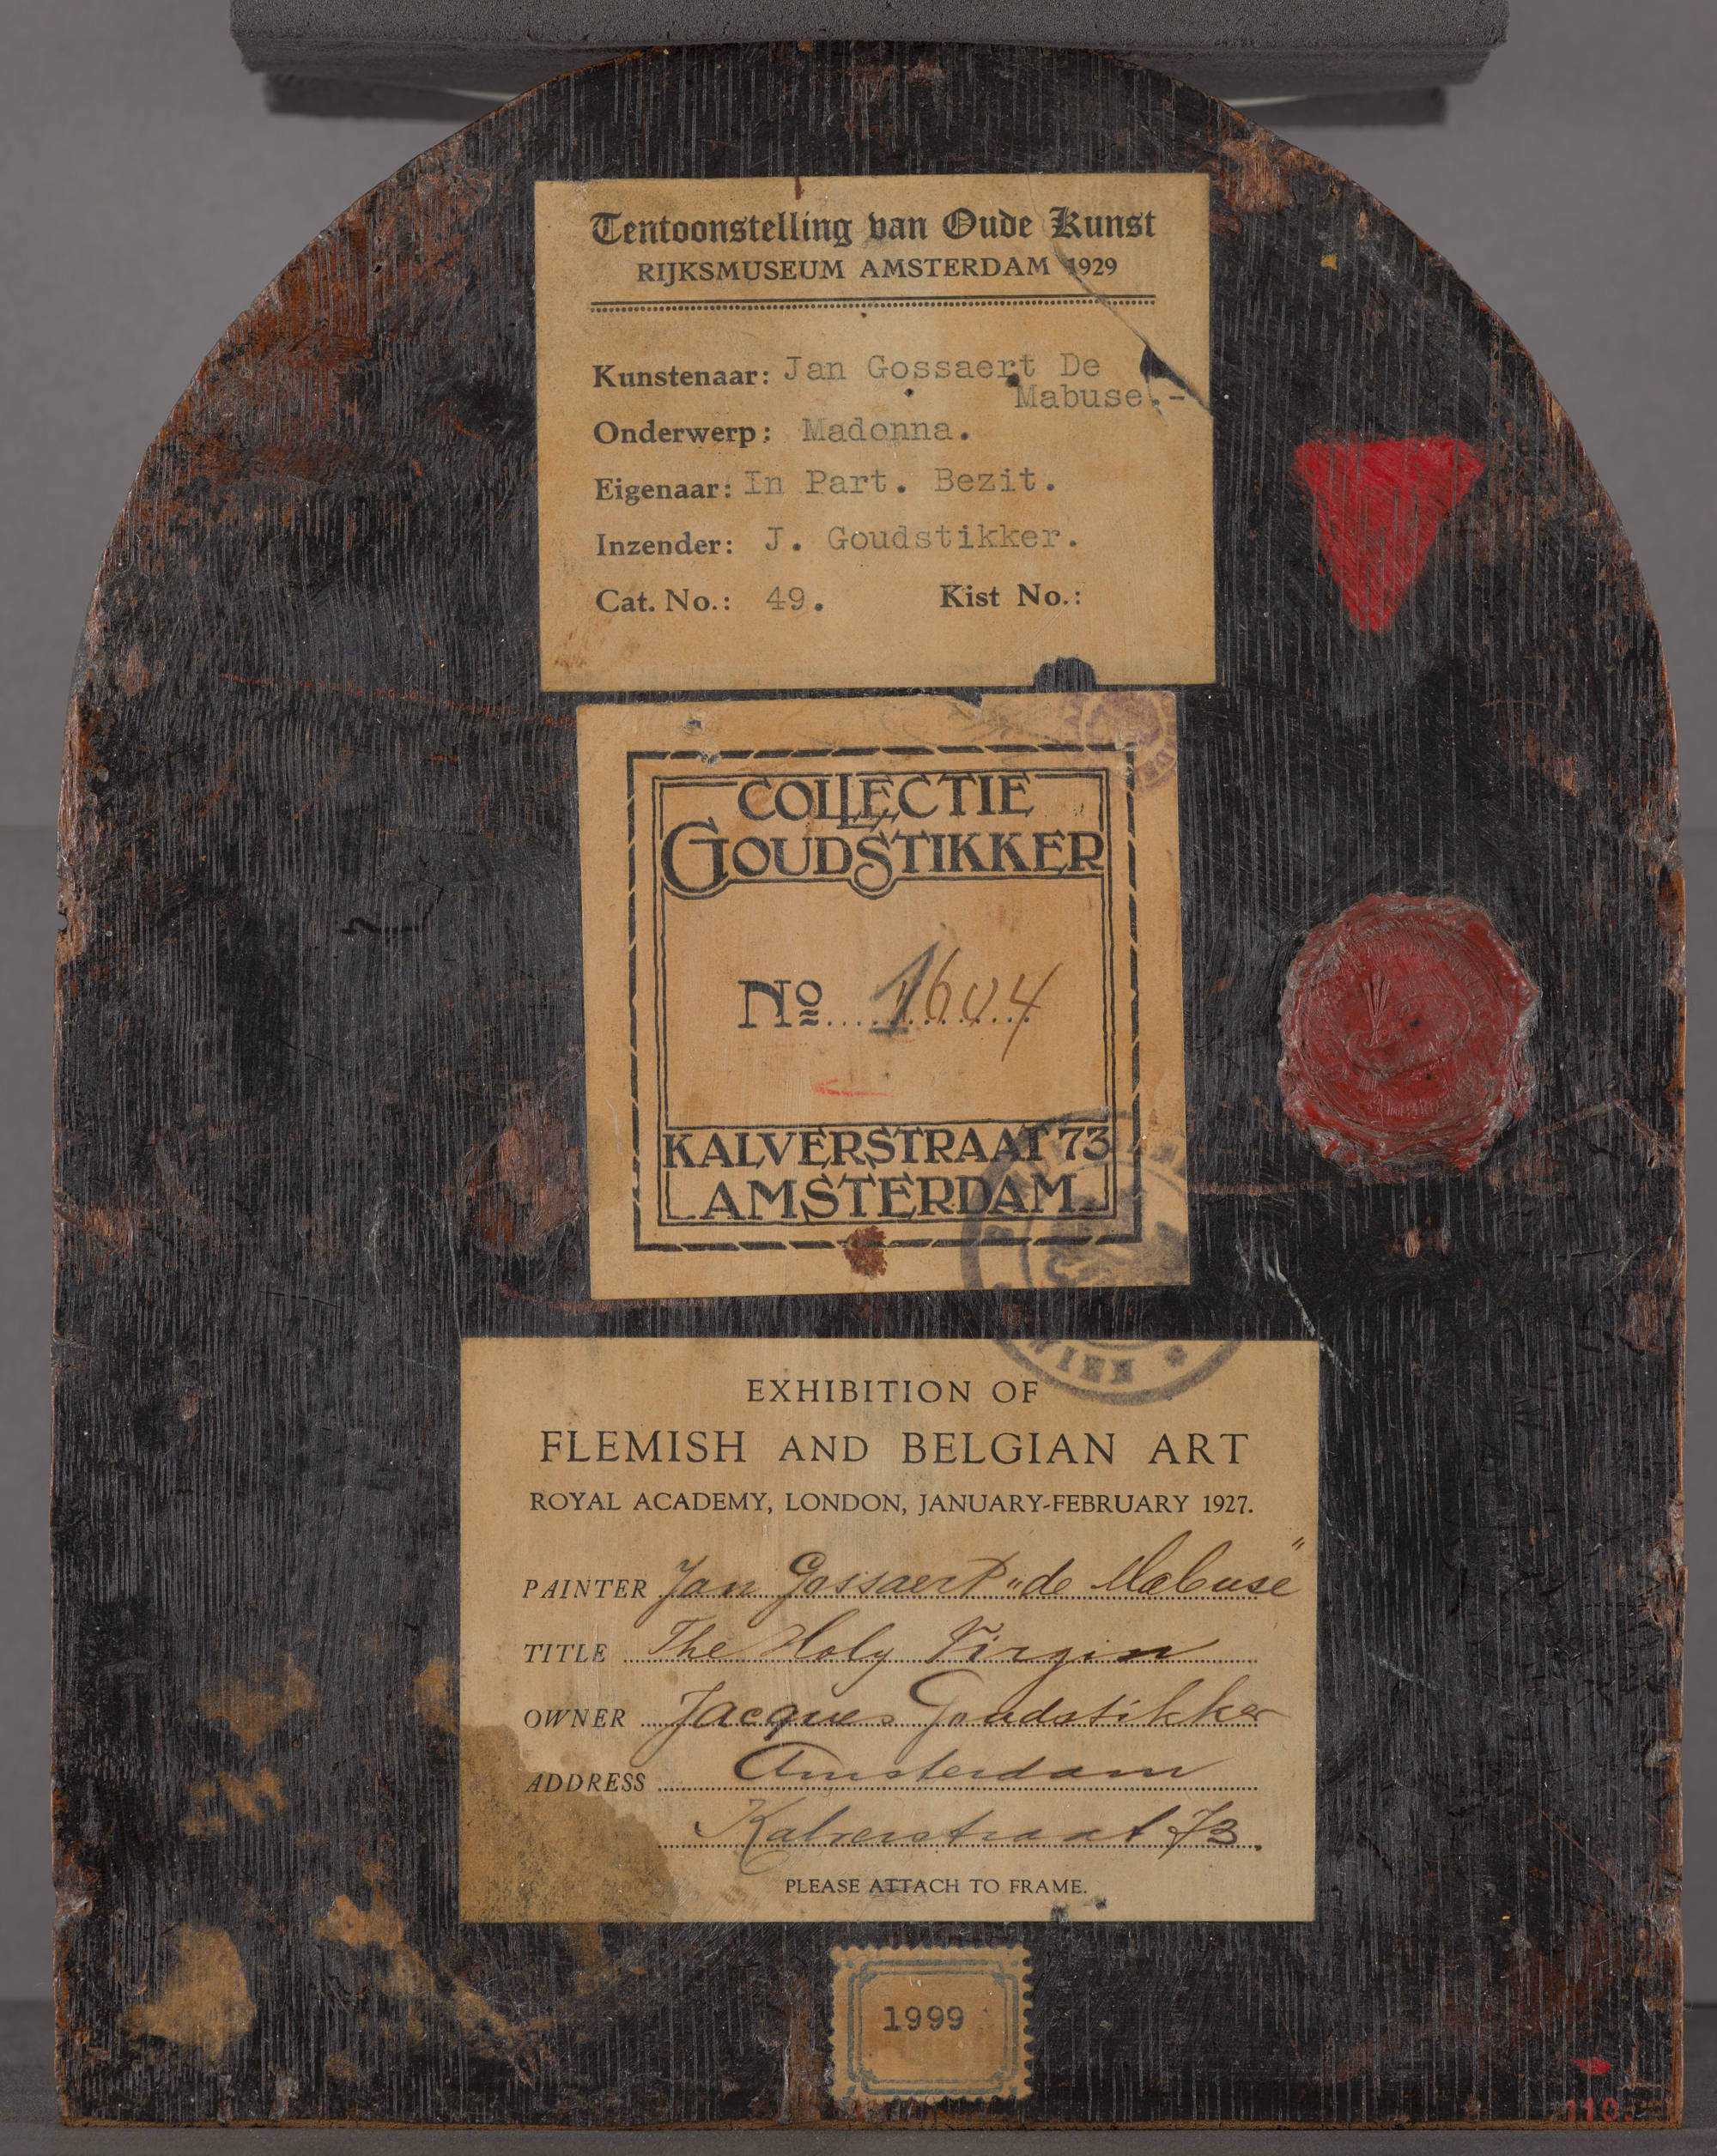 Tentoonstelling van Oude Kunst
RIJKSMUSEUM AMSTERDAM 1929
Kunstenaar: Jan Gossaert De
Mabuse.-
Onderwerp: Madonna.
Eigenaar: In Part. Bezit.
Inzender: J. Goudstikker.
Cat. No.: 49. Kist No.:
COLLECTIE
GOUDSTIKKER
No 1604
KALVERSTRAAT 73
AMSTERDAM
WIEN
EXHIBITION OF
FLEMISH AND BELGIAN ART
ROYAL ACADEMY, LONDON, JANUARY-FEBRUARY 1927.
PAINTER Jan Gossaert "de Mabuse"
TITLE The Holy Virgin
OWNER Jacques Goudstikker
ADDRESS Amsterdam
Kalverstraat 73.
PLEASE ATTACH TO FRAME.
1999
110.